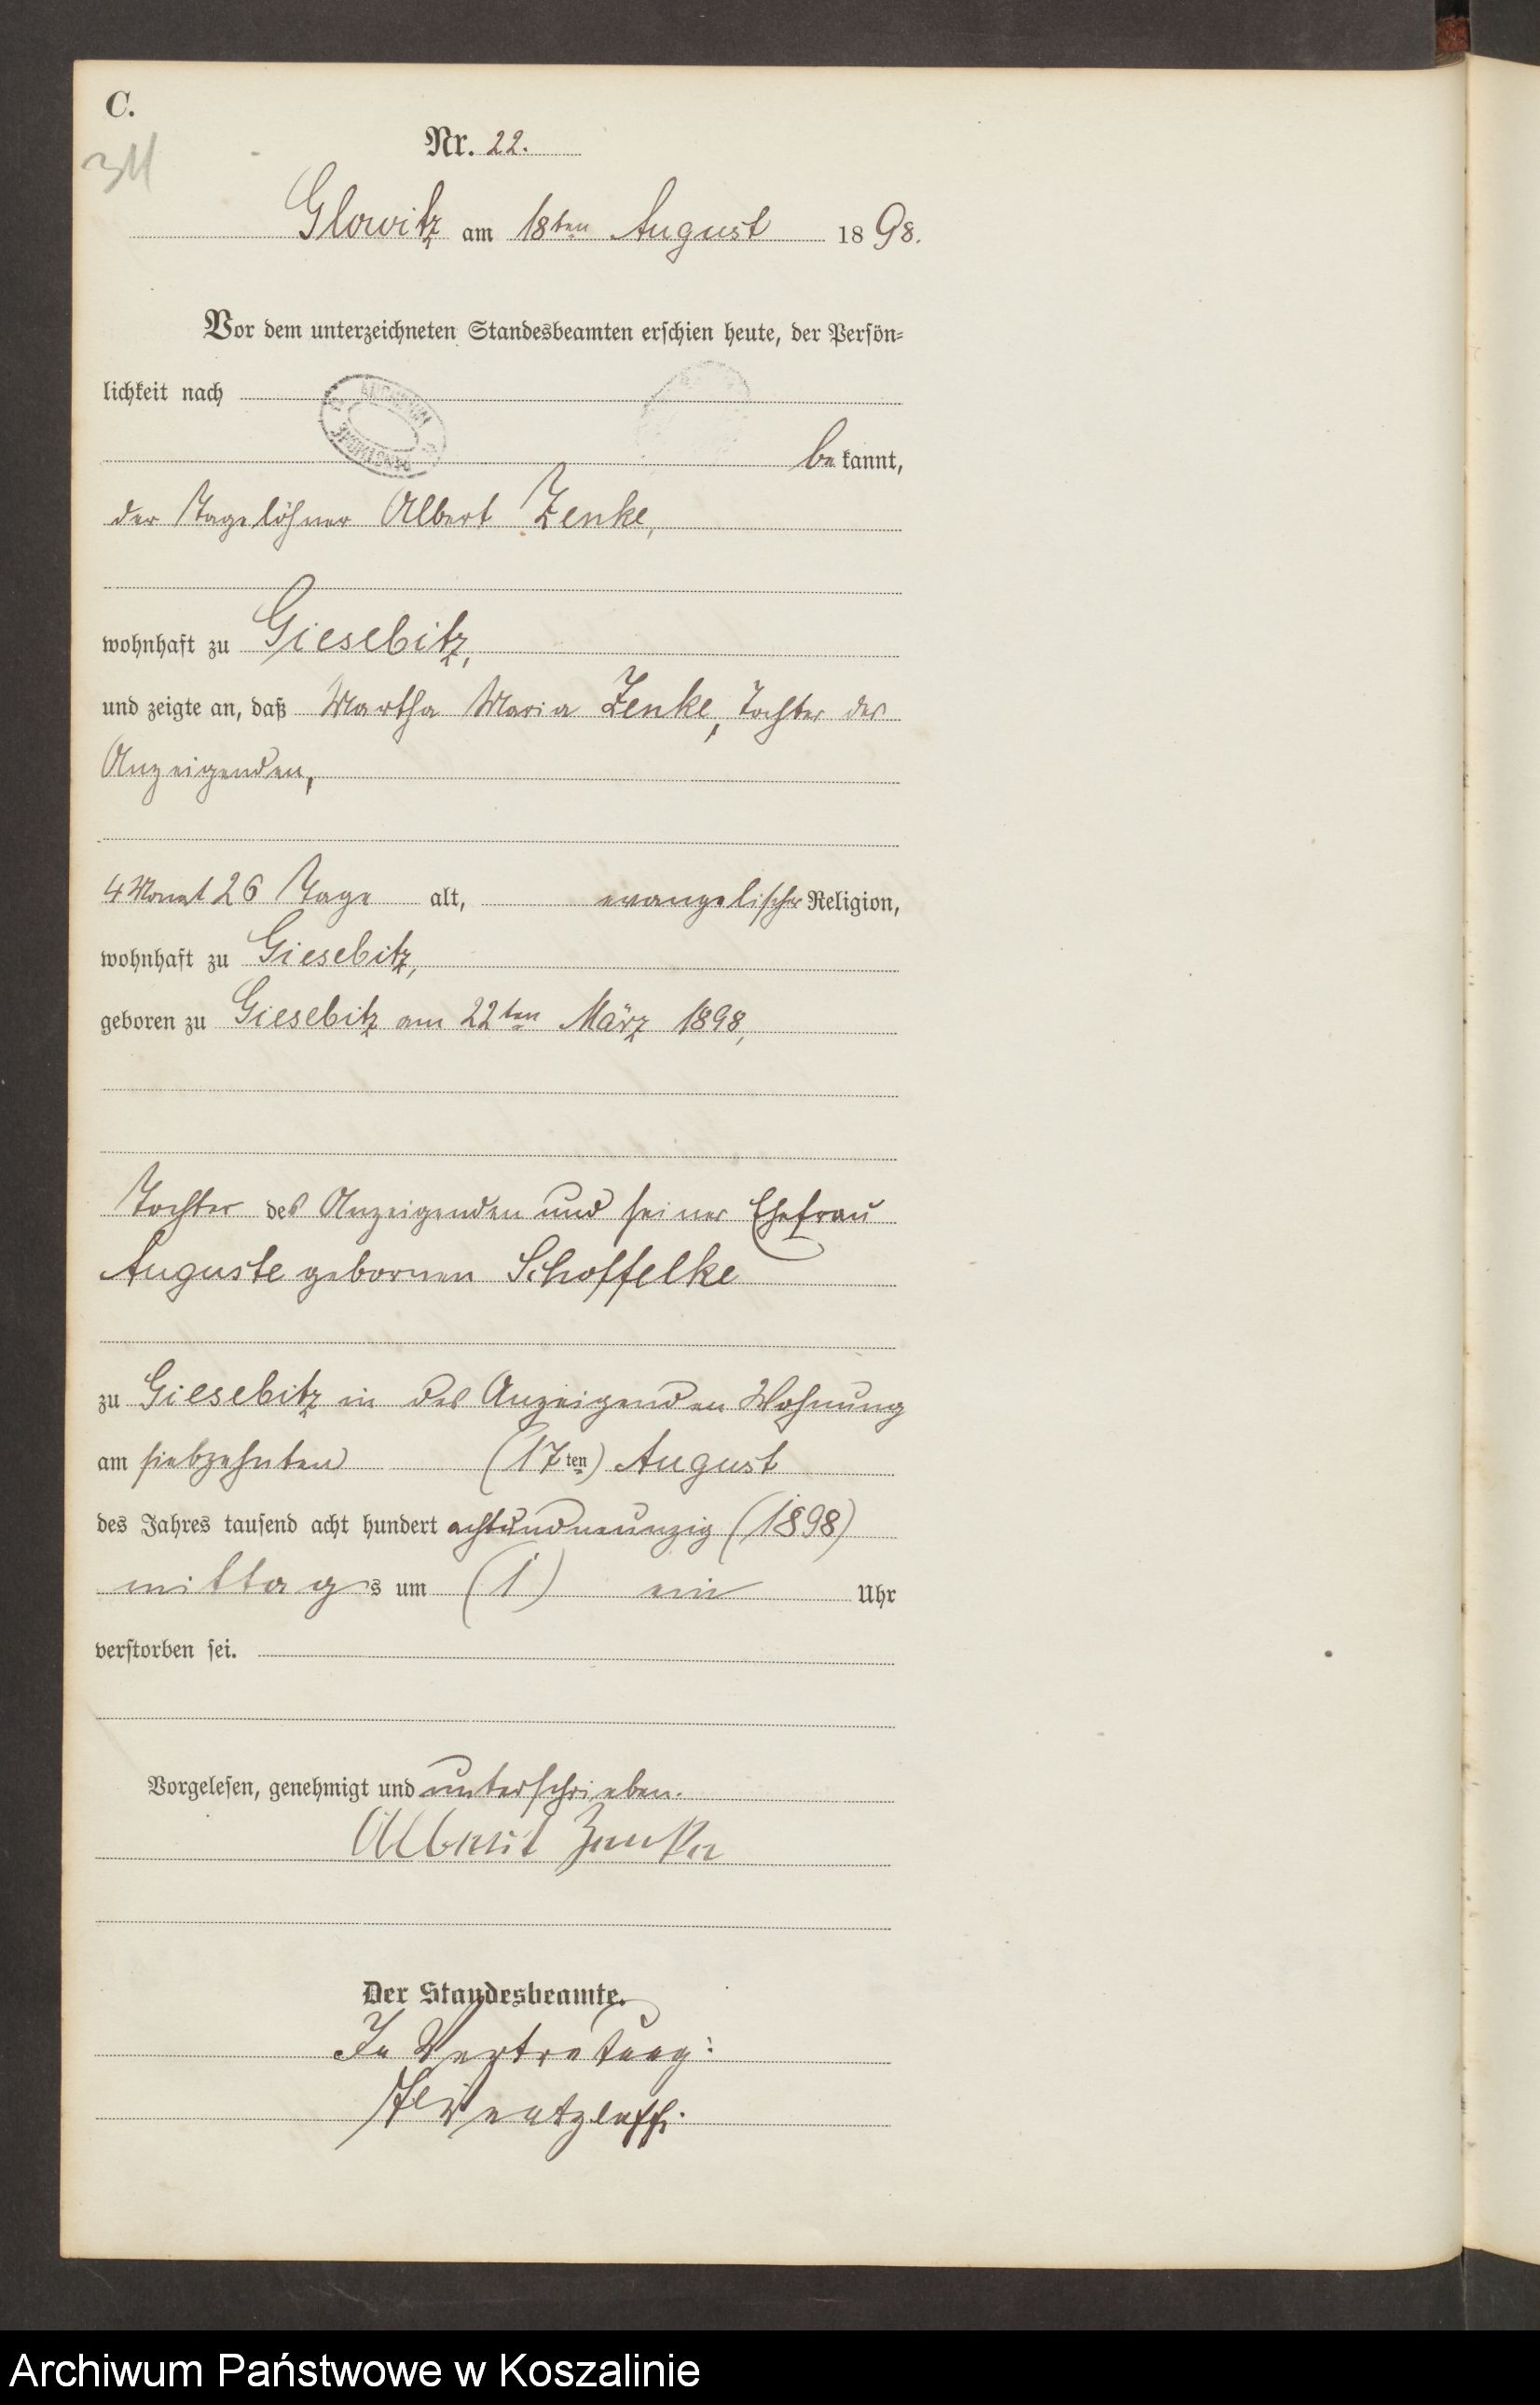 C.
34
Nr. 22.
Glowitz am 18ten August 1898.
Vor dem unterzeichneten Standesbeamten erschien heute, der Persön=
lichkeit nach
bekannt,
der Tagelöhner Albert Zenke,
wohnhaft zu Giesebitz,
und zeigte an, daß Martha Maria Zenke, Tochter des
Anzeigenden,
4 Monat 26 Tage alt, evangelischer Religion,
wohnhaft zu Giesebitz,
geboren zu Giesebitz am 22ten März 1898,
Tochter des Anzeigenden und seiner Ehefrau
Auguste gebornen Schoffelke
zu Giesebitz in des Anzeigenden Wohnung
am siebzehnten (17ten) August
des Jahres tausend acht hundert achtundneunzig (1898)
mittags um (1) ein Uhr
verstorben sei.
Vorgelesen, genehmigt und unterschrieben.
Albert Zenke
Der Standesbeamte.
In Vertretung:
Archiwum Państwowe w Koszalinie